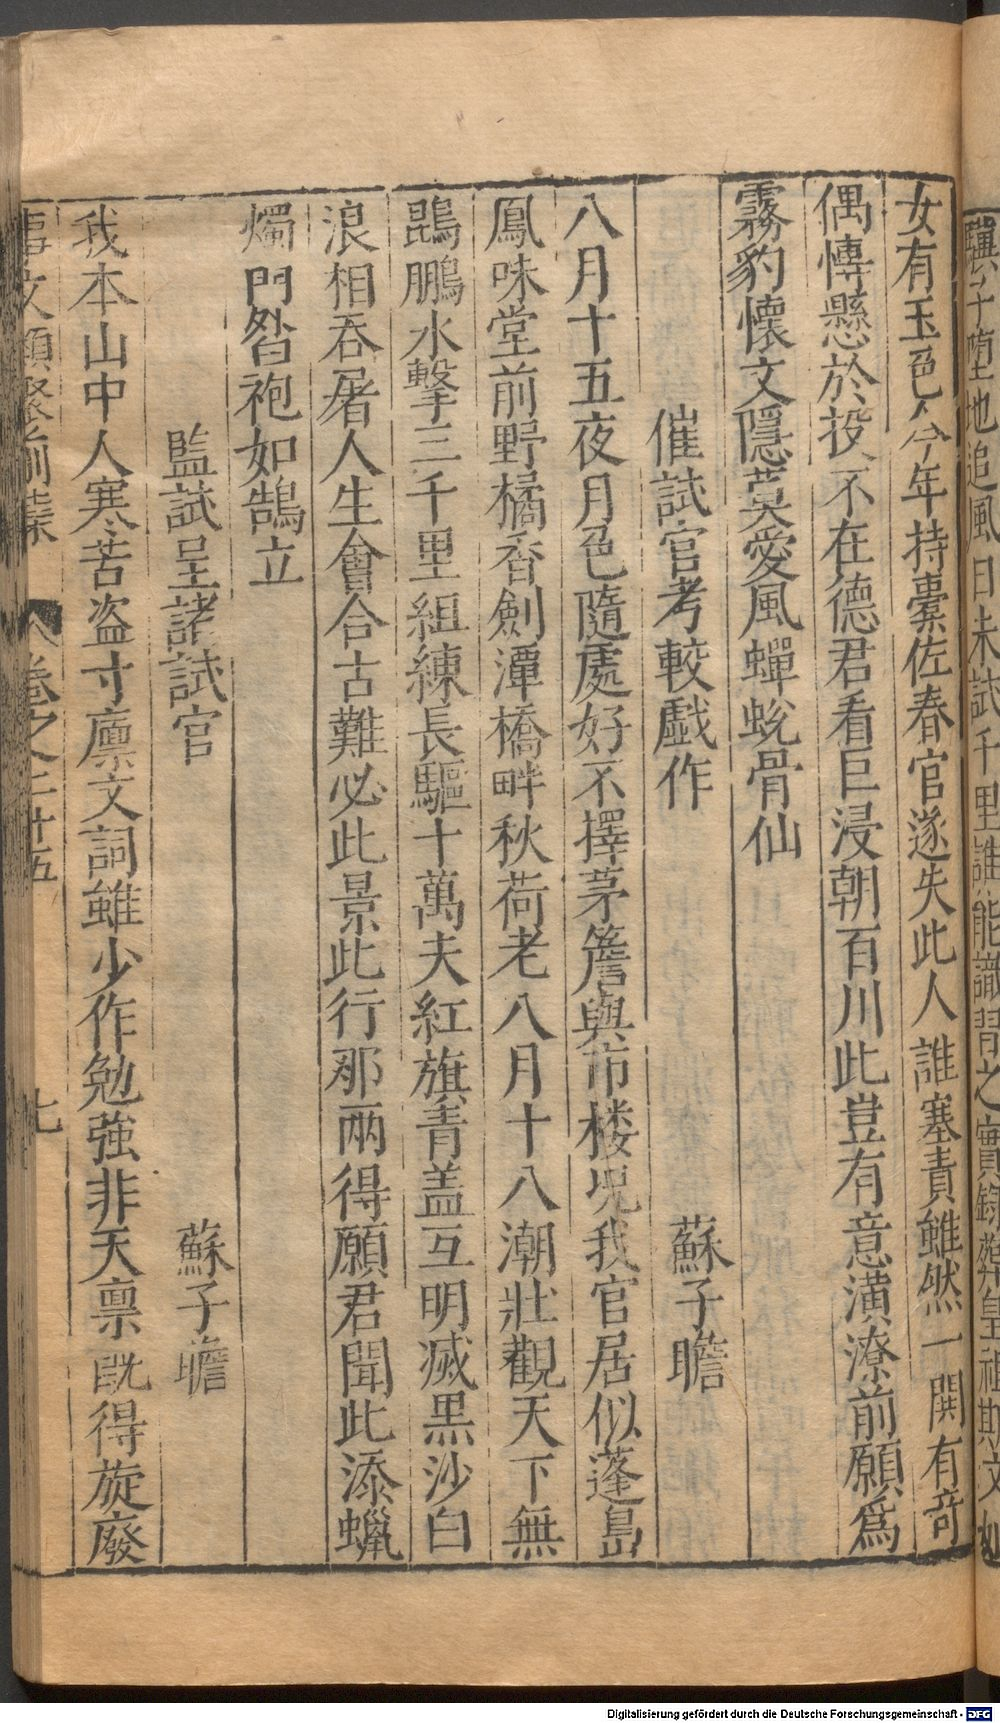 驥子墮地追風日未試千里誰能識習之實錄葬皇祖斯文如
女有玉色今年持橐佐春官遂失此人誰塞責雖然一閧有竒
偶慱懸於投不在德君看巨浸朝百川此豈有意潢潦前願爲
霧豹懷文隱莫愛風蟬蛻骨仙
催試官考較戯作　蘇子瞻
八月十五夜月色隨處好不擇茅簷與市楼况我官居似蓬島
鳳味堂前野橘香劍潭橋畔秋荷老八月十八潮壯觀天下無
鵾鵬水擊三千里組練長驅十萬夫紅旗青盖互明滅黒沙白
浪相吞屠人生會合古難必此景此行那兩得願君聞此添蠟
燭門外白袍如鵠立
監試呈諸試官　蘇子瞻
我本山中人寒苦盗寸廪文詞雖少作勉強非天禀既得旋廢
事文類聚前集　卷之二十五　七
Digitalisierung gefördert durch die Deutsche Forschungsgemeinschaft - DFG